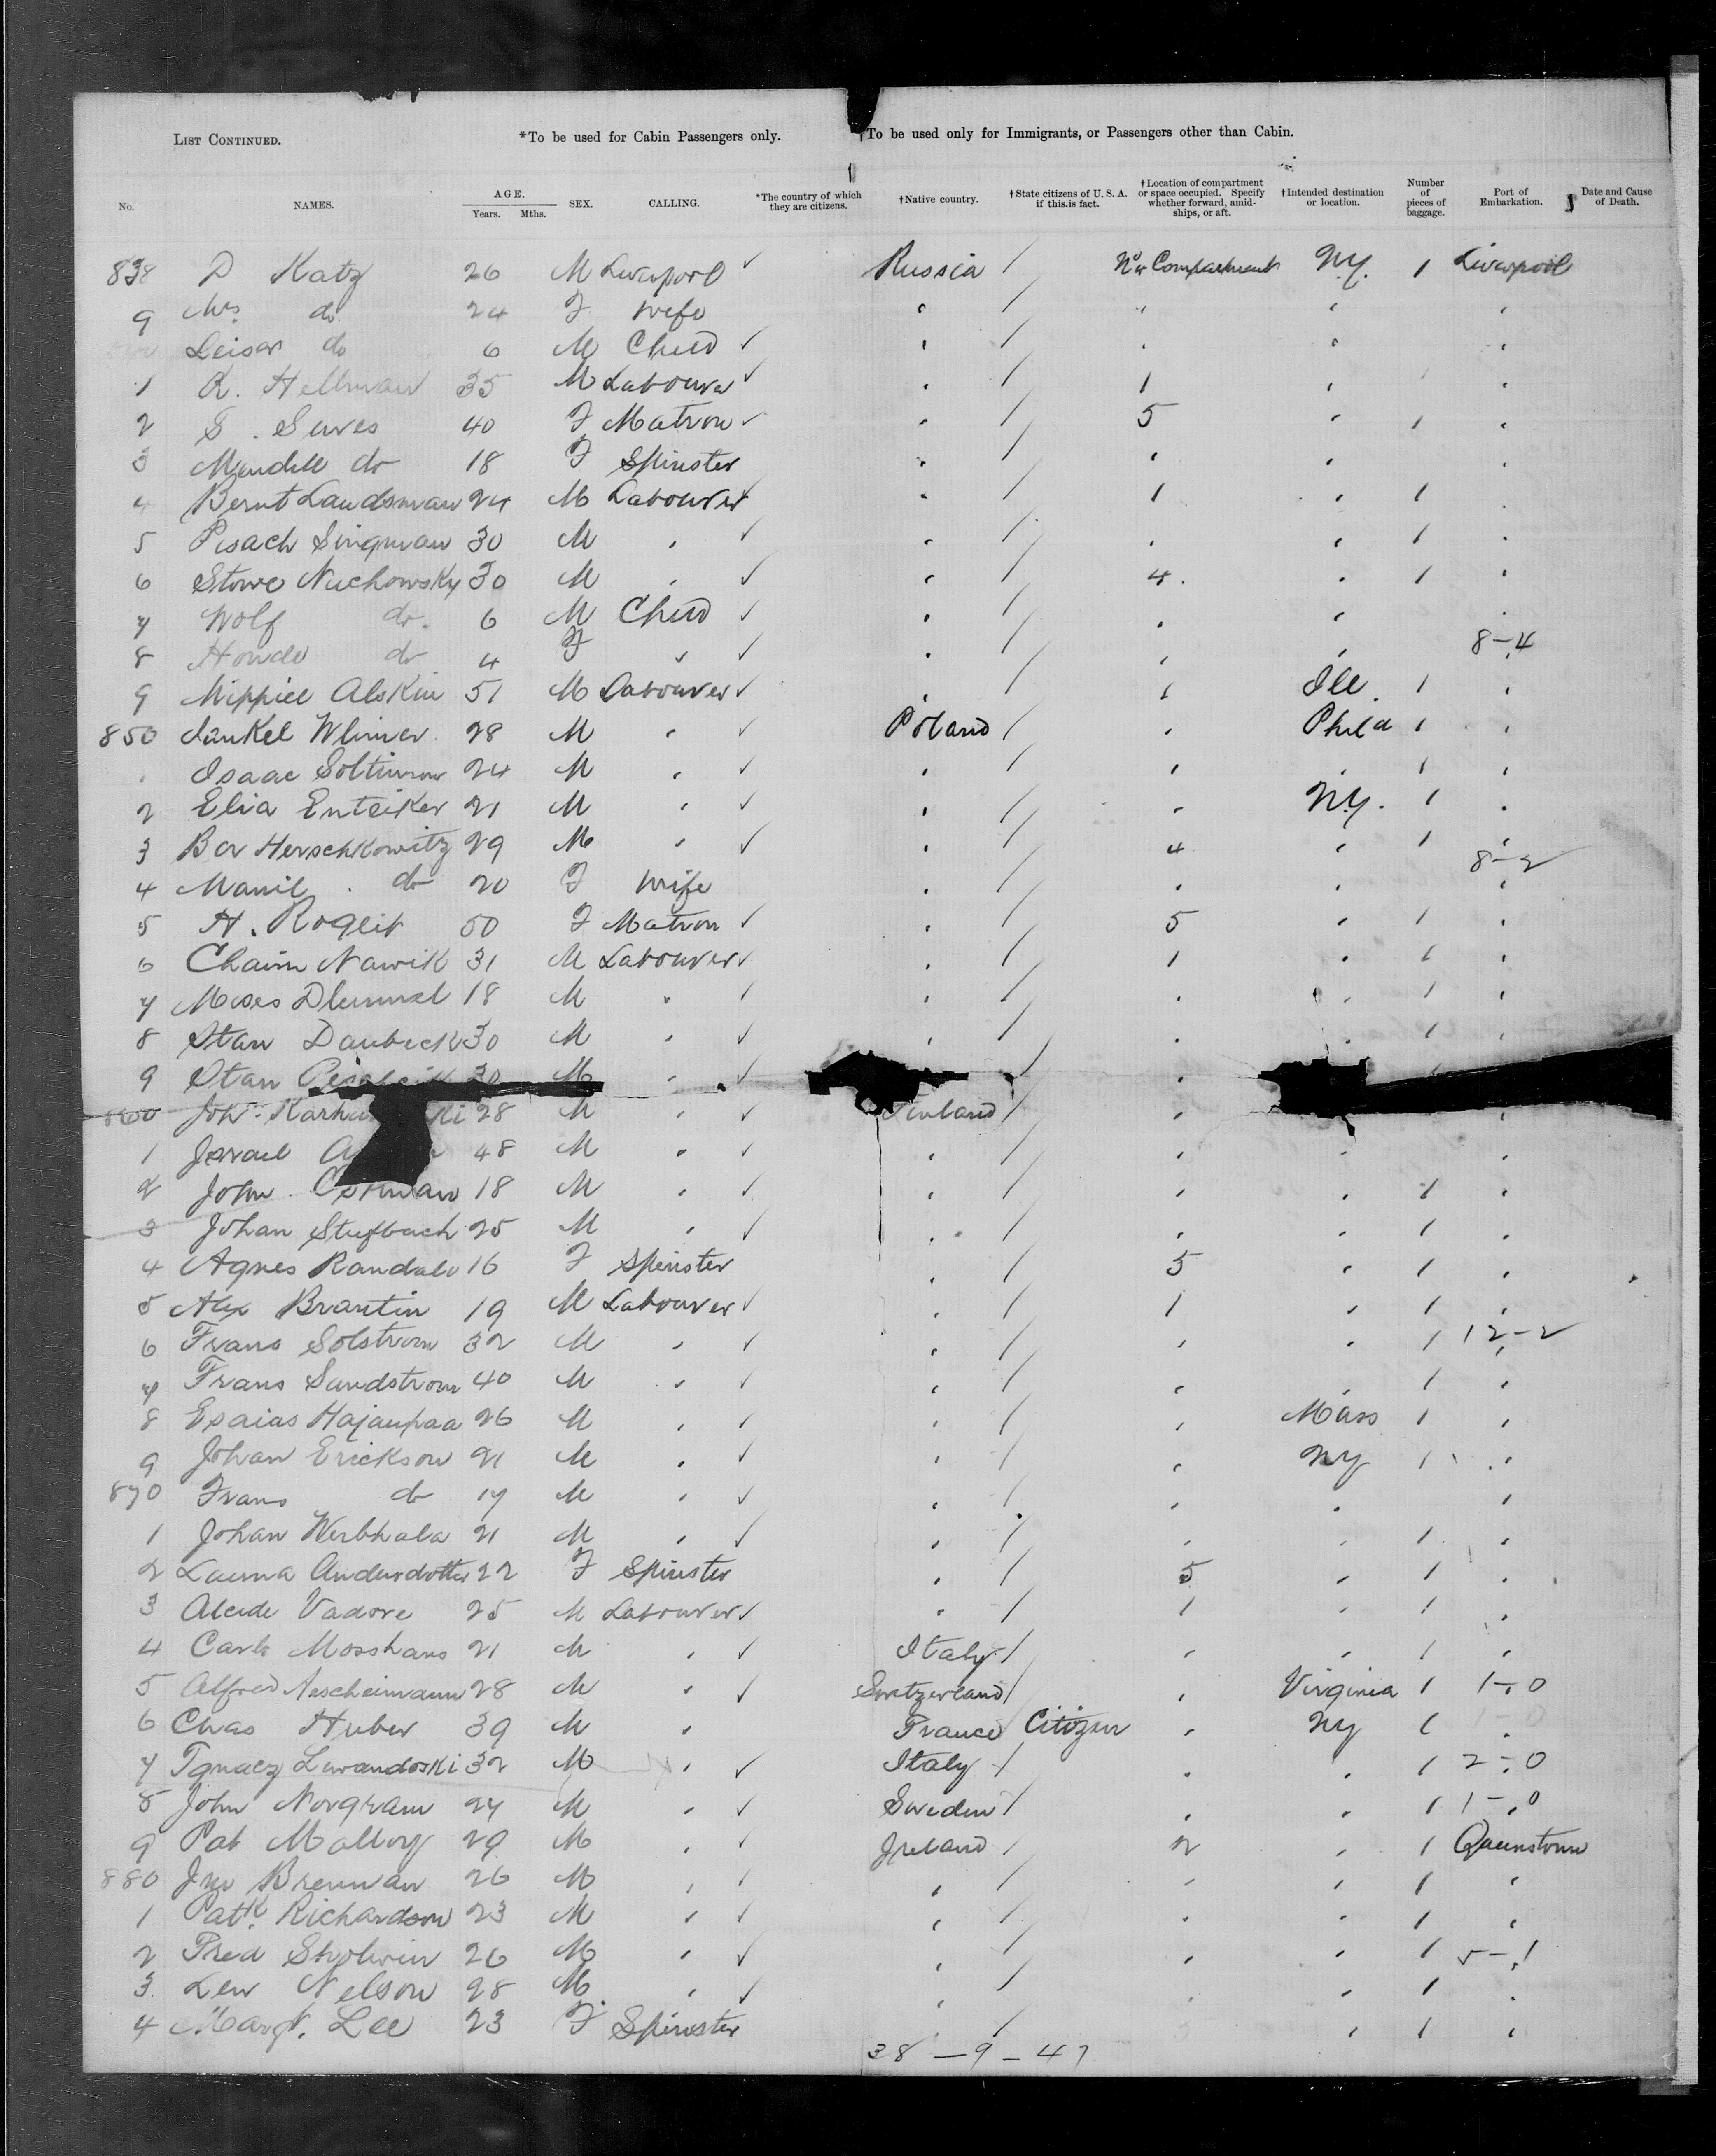 LIST CONTINUED. *To be used for Cabin Passengers only. †To be used only for Immigrants, or Passengers other than Cabin.
No. NAMES. AGE. Years. Mths. SEX. CALLING. *The country of which they are citizens. †Native country. †State citizens of U. S. A. if this is fact. †Location of compartment or space occupied. Specify whether forward, amidships, or aft. †Intended destination or location. Number of pieces of baggage. Port of Embarkation. Date and Cause of Death.
838 D Katz 26 M Liverpool ✓ Russia / Compartment N.Y. 1 Liverpool
9 Mrs do 24 F Wife " / " " "
Leisar do 6 M Child ✓ " / " " "
1 R. Hellman 35 M Labourer ✓ " / 1 " ' "
2 S. Serves 40 F Matron ✓ " / 5 " 1 "
3 Mendell do 18 F Spinster " / " " "
4 Bernt Landsman 24 M Labourer ✓ " / 1 " 1 "
5 Pisach Singman 30 M " ✓ " / " " 1 "
6 Stowe Nuchowsky 30 M " ✓ " / 4. " 1 "
7 Wolf do. 6 M Child ✓ " / " " "
8 do 4 F " ✓ " / " " 8-4 "
9 Alskin 51 M Labourer ✓ " / " Ill. 1 "
850 Jankel Wlimer 28 M " ✓ Poland / " Phila 1 "
" Isaac 24 M " ✓ " / " " 1 "
2 Elia Enteiker 21 M " ✓ " / " N.Y. 1 "
3 Ber Herschkowitz 29 M " ✓ " / 4 " 1 "
4 do 20 F Wife " / " " 8-2 "
5 H. Rogeit 50 F Matron ✓ " / 5 " 1 "
6 Chaim Nawik 31 M Labourer ✓ " / 1 " 1 "
7 Moses 18 M " ✓ " / " " 1 "
8 Stan Daubeck 30 M " ✓ " / " 1 "
9 Stan 30 M " ✓ / "
860 Joh. 28 M " ✓ Finland / " "
1 Israel 48 M " ✓ " / " " "
2 John 18 M " ✓ " / " " 1 "
3 Johan Stufbach 25 M " ✓ " / " " 1 "
4 Agnes Randale 16 F Spinster " / 5 " 1 "
5 Alex Brantin 19 M Labourer ✓ " / 1 " 1 "
6 Frans Solstrom 32 M " ✓ " / " " 1 12-2 "
7 Frans Sundstrom 40 M " ✓ " / " " 1 "
8 Esaias Hajanpaa 26 M " ✓ " / " Mass 1 "
9 Johan Erickson 21 M " ✓ " / " NY 1 "
870 Frans do 17 M " ✓ " / " " "
1 Johan Werbhala 21 M " ✓ " / " " 1 "
2 Anderdotter 22 F Spinster " / 5 " 1 "
3 Alcide Vadore 25 M Labourer ✓ " / 1 " 1 "
4 Carlo Mosshans 21 M " ✓ Italy / " " 1 "
5 Alfred Aescheimann 28 M " ✓ Switzerland / " Virginia 1 1-0 "
6 Chas Huber 39 M " France Citizen " NY 1 "
7 Ignacz Lewandoski 32 M " ✓ Italy / " " 1 2-0 "
8 John Norgram 24 M " ✓ Sweden / " " 1 1-0 "
9 Pat Malloy 29 M " ✓ Ireland / 2 " 1 Queenstown
880 Jno Brennan 26 M " ✓ " / " " 1 "
1 Patk. Richardson 23 M " ✓ " / " " 1 "
2 Fred 26 M " ✓ " / " " 1 5-1 "
3. Lew Nelson 28 M " ✓ " / " " 1 "
4 Margt. Lee 23 F Spinster " / " 1 "
38 - 9 - 47